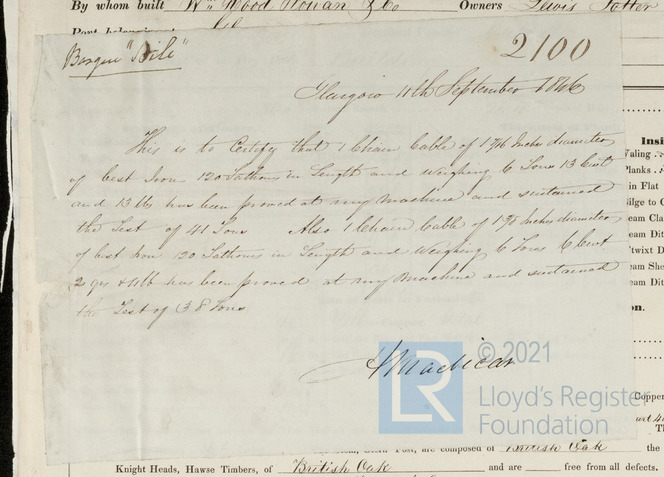 By whom built Wm Wood Rowan & Co Owners Lewis Potter
Barque "Nile"
2100
Glasgow 11th September 1846
This is to Certify that 1 Chain Cable of 1 7/16 Inches diameter
of best Iron 120 Fathoms in Length and weighing 6 Tons 13 Cwt
and 13 lbs has been proved at my Machine and sustained
the Test of 41 Tons Also 1 Chain Cable of 1 3/8 Inches diameter
of best Iron 120 Fathoms in Length and weighing 6 Tons 6 Cwt
2 qrs lb has been proved at my Machine and sustained
the Test of 38 Tons
Macvicar
© 2021
LR
Lloyd's Register
Foundation
Insi
Waling
Planks
in Flat
Bilge to
eam Cla
eam Dit
'twixt D
eam She
eam Dit
Copper
Post, are composed of British Oak the
Knight Heads, Hawse Timbers, of British Oak and are free from all defects.